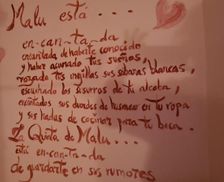 Malu está . . .
en-can-ta-da
encantada de haberte conocido
y haber acunado tus sueños,
rozado tus mejillas sus sábanas blancas,
escuchado los susurros de tu alcoba,
encantados sus duendes de husmear en tu ropa
y sus hadas de cocinar para tu boca.
La Quinta de Malu . . .
está en-can-ta-da
de guardarte en sus rumores